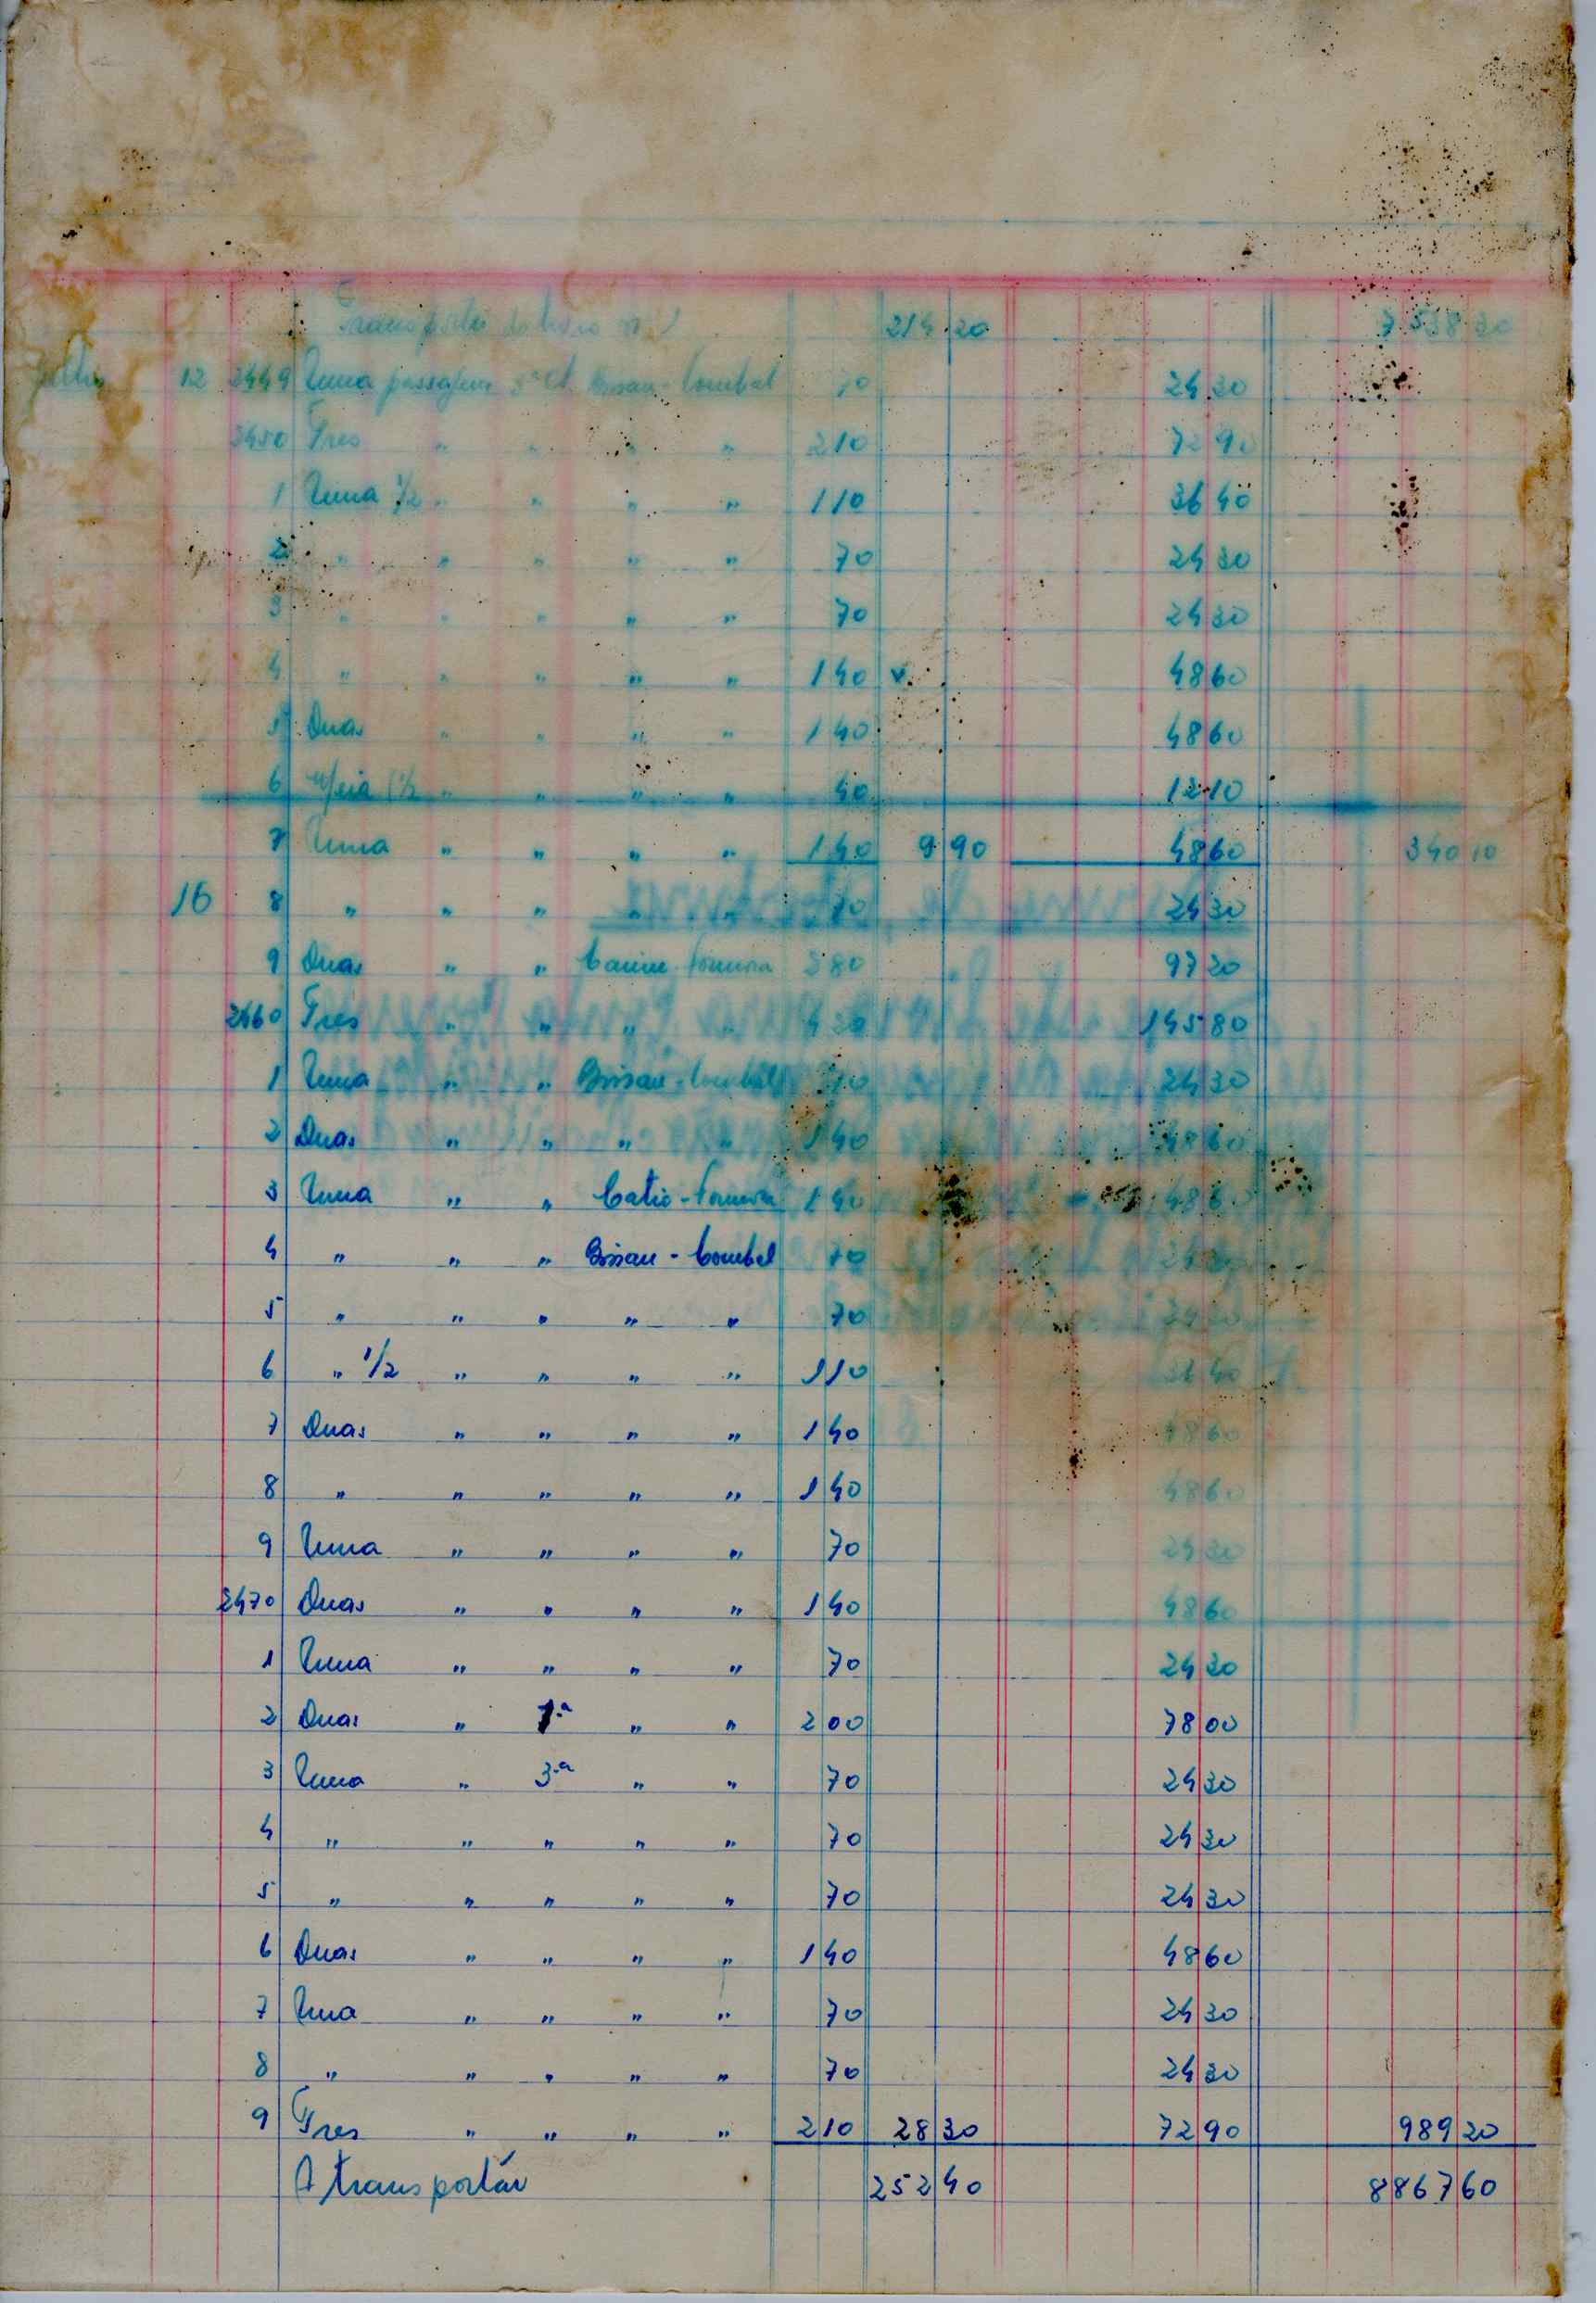 Transporte do livro nº 1 214 20 7 538 30
Julho 12 2449 Uma passagem 3ª cl. Bissau - Combel 70 24 30
2450 Tres " " " " 2 10 72 90
1 Uma 1/2 " " " " 1 10 36 40
2 " " " " " 70 24 30
3 " " " " " 70 24 30
4 " " " " " 1 40 v. 48 60
5 Duas " " " " 1 40 48 60
6 Meia (1/2 " " " " 40 12 10
7 Uma " " " " 1 40 9 90 48 60 340 10
16 8 " " " " " 70 24 30
9 Duas " " 2 80 97 20
2460 Tres " " " " 4 20 145 80
1 Uma " " Bissau - Combel 70 24 30
2 Duas " " " " 1 40 48 60
3 Uma " " Catio - 1 40 48 60
4 " " " Bissau - Combel 70 24 30
5 " " " " " 70 24 30
6 " 1/2 " " " " 1 10 36 40
7 Duas " " " " 1 40 48 60
8 " " " " " 1 40 48 60
9 Uma " " " " 70 24 30
2470 Duas " " " " 1 40 48 60
1 Uma " " " " 70 24 30
2 Duas " 1.ª " " 2 00 78 00
3 Uma " 3.ª " " 70 24 30
4 " " " " " 70 24 30
5 " " " " " 70 24 30
6 Duas " " " " 1 40 48 60
7 Uma " " " " 70 24 30
8 " " " " " 70 24 30
9 Tres " " " " 2 10 28 30 72 90 989 20
A transportár 252 40 8867 60